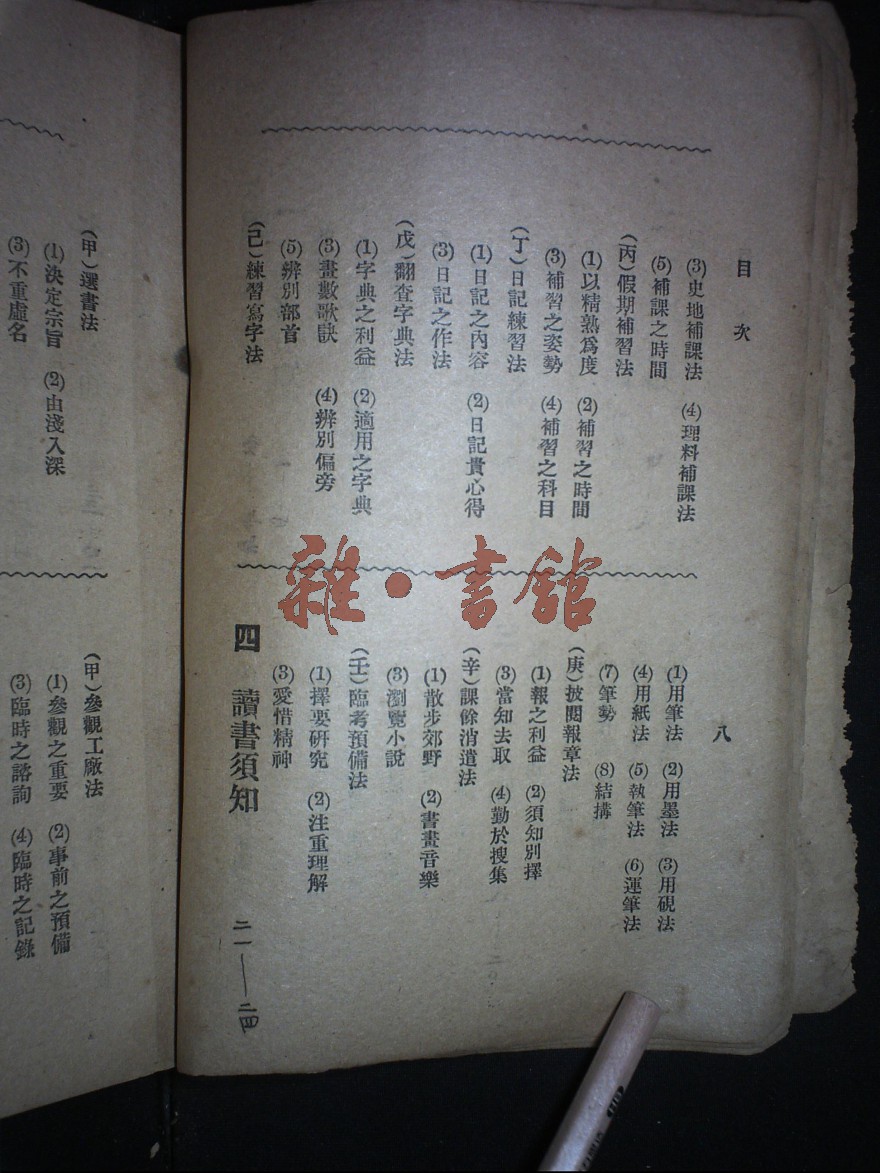 目次
八
(3)史地補課法 (4)理料補課法
(5)補課之時間
(丙)假期補習法
(1)以精熟爲度 (2)補習之時間
(3)補習之姿勢 (4)補習之科目
(丁)日記練習法
(1)日記之內容 (2)日記貴心得
(3)日記之作法
(戊)翻查字典法
(1)字典之利益 (2)適用之字典
(3)畫數歌訣 (4)辨別偏旁
(5)辨別部首
(己)練習寫字法
(1)用筆法 (2)用墨法 (3)用硯法
(4)用紙法 (5)執筆法 (6)運筆法
(7)筆勢 (8)結搆
(庚)披閱報章法
(1)報之利益 (2)須知別擇
(3)當知去取 (4)勤於搜集
(辛)課餘消遣法
(1)散步郊野 (2)書畫音樂
(3)瀏覽小說
(壬)臨考預備法
(1)擇要研究 (2)注重理解
(3)愛惜精神
四 讀書須知 二一——二四
(甲)選書法
(1)決定宗旨 (2)由淺入深
(3)不重虛名
(甲)參觀工廠法
(1)參觀之重要 (2)事前之預備
(3)臨時之諮詢 (4)臨時之記錄
雜·書館